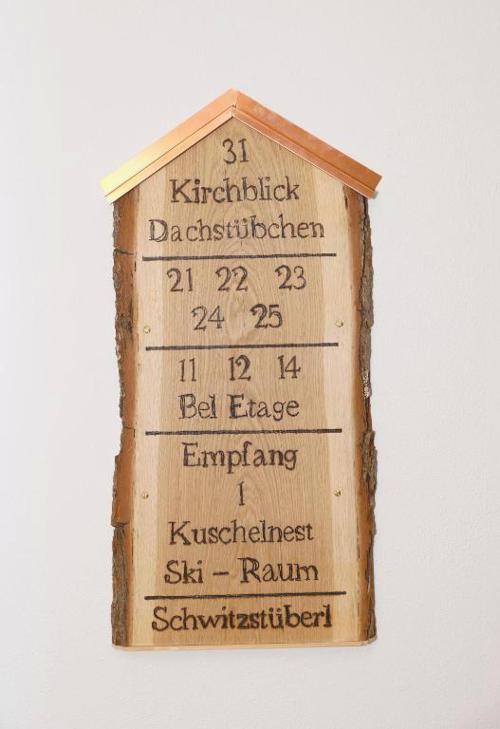 31
Kirchblick
Dachstübchen
21 22 23
24 25
11 12 14
Bel Etage
Empfang
1
Kuschelnest
Ski – Raum
Schwitzstüberl